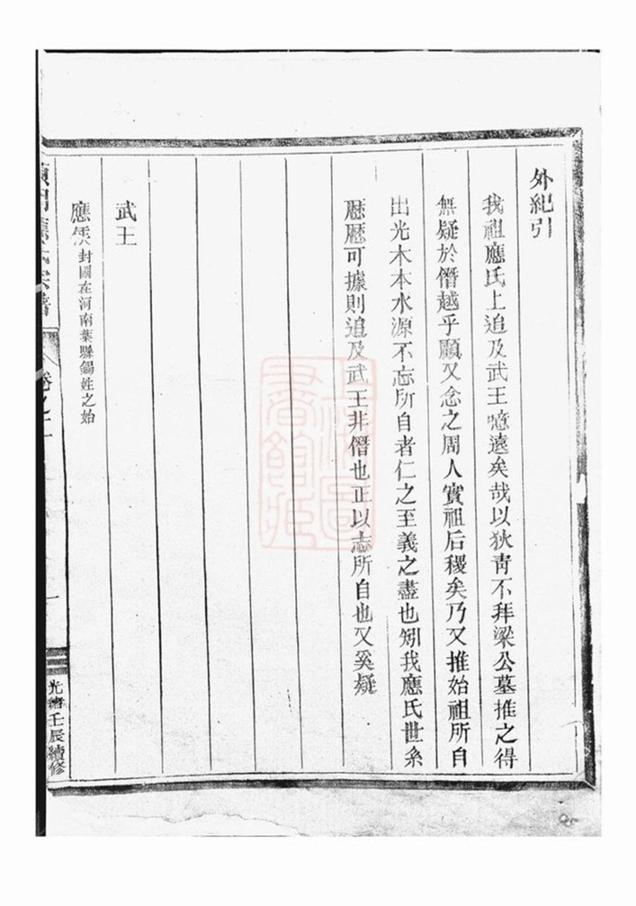 外紀引
我祖應氏上追及武王噫遠矣哉以狄靑不拜梁公墓推之得
無疑於僭越乎顧又念之周人實祖后稷矣乃又推始祖所自
出光木本水源不忘所自者仁之至義之盡也矧我應氏世系
歷歷可據則追及武王非僭也正以志所自也又奚疑
武王
應侯封國在河南葉縣錫姓之始
應氏宗譜
卷之
一
光緖壬辰續修